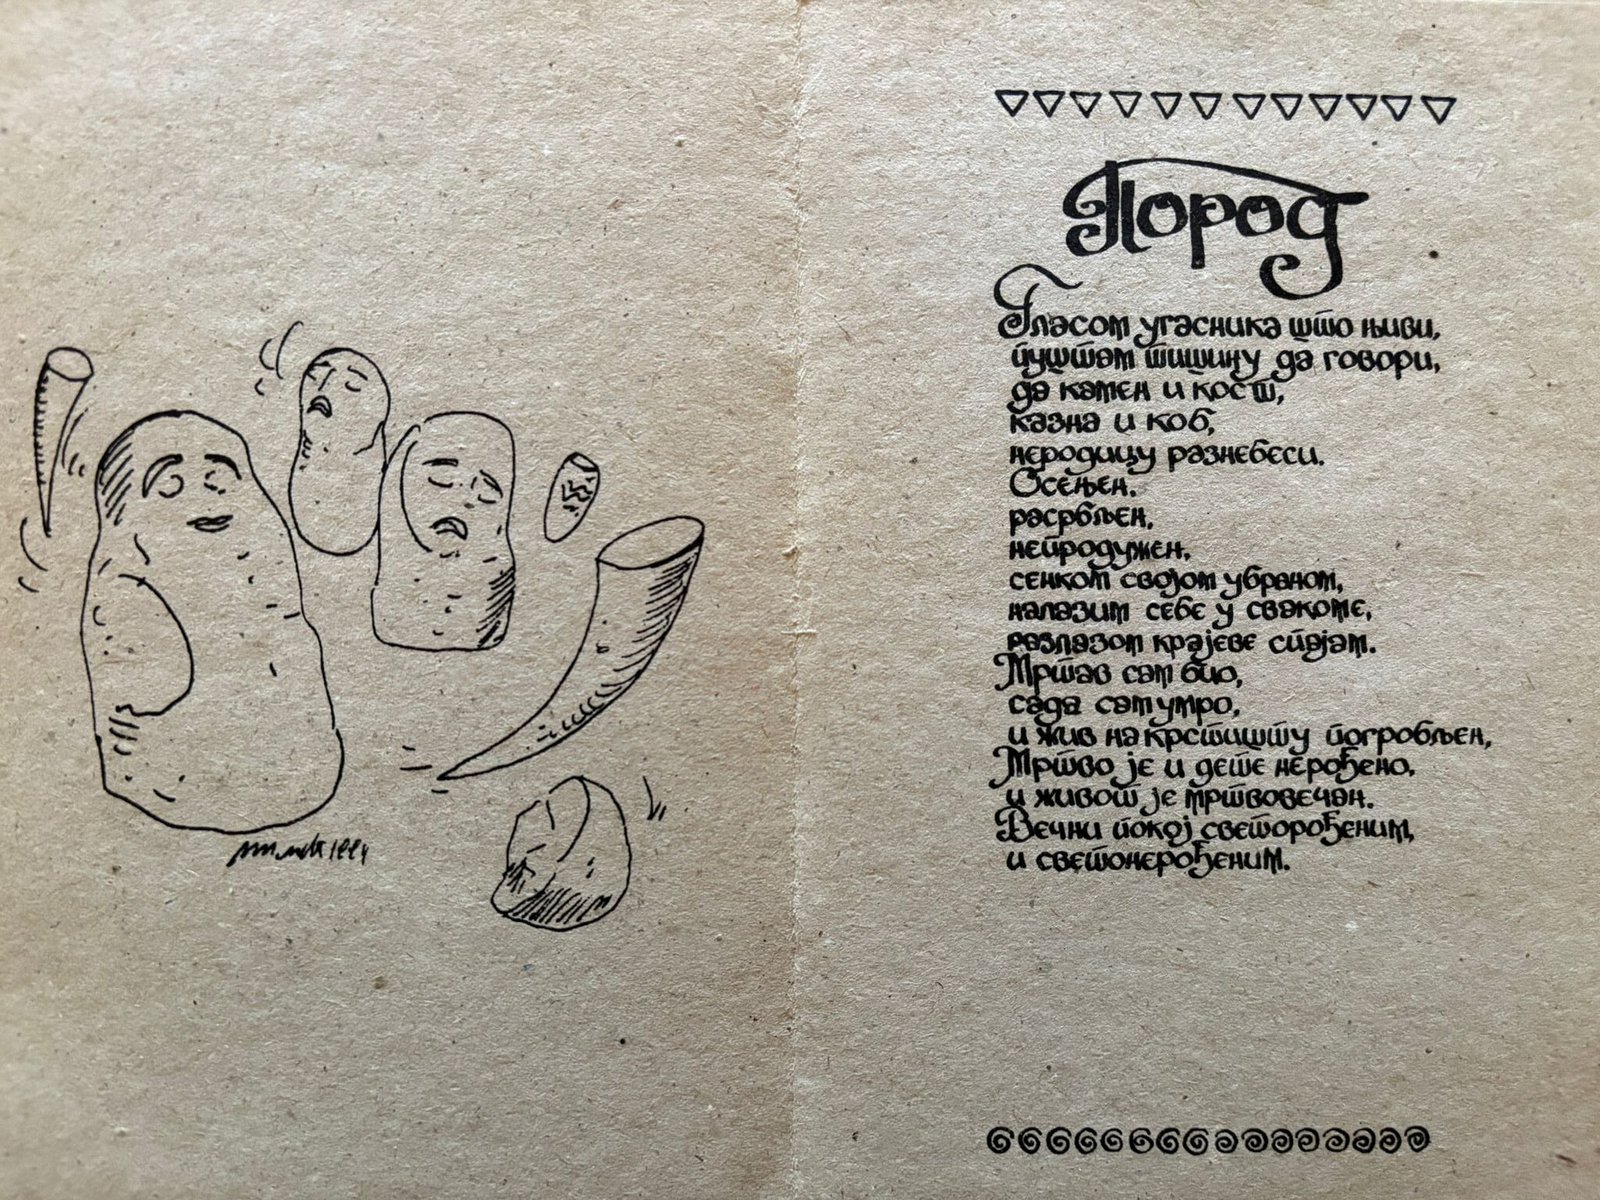 1994
Пород
Гласом угасника што њиви,
пуштам тишину да говори,
да камен и кост,
казна и коб,
неродицу разнебеси.
Осењен.
расрбљен,
непродужен,
сенком својом убраном,
налазим себе у свакоме,
разлазом крајеве спајам.
Мртав сам био,
сада сам умро,
и жив на крстишту погробљен,
Мртво је и дете нерођено,
и живот је мртвовечан.
Вечни покој светорођеним,
и светонерођеним.